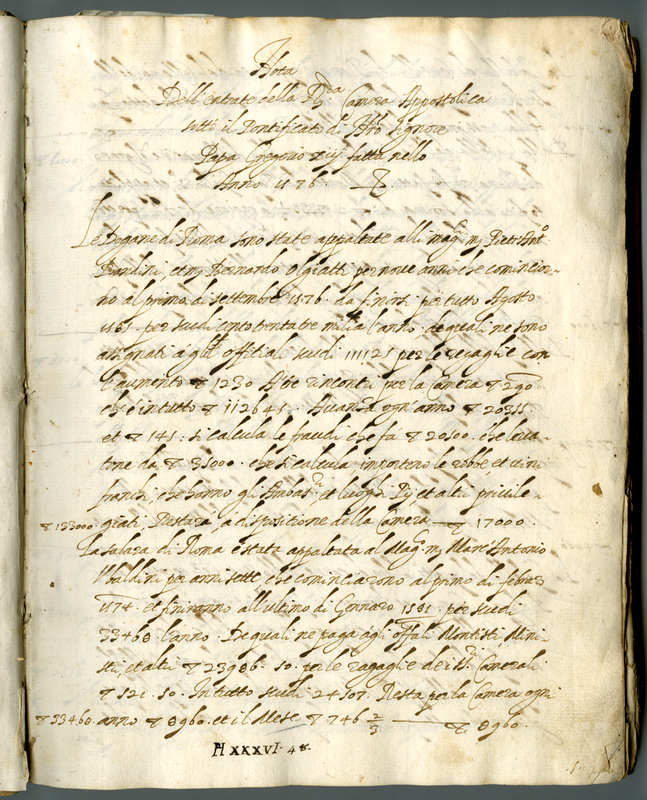 Nota
Dell entrate della R.da Camera Appostolica
sotto il Pontificato di N.ro Signore
Papa Gregorio xiij fatta nello
Anno 1576.
Le Dogane di Roma sono state appaltate alli mag.ci m. Pietr'Ant.o
Bandini, et m. Bernardo Olgiatti per nove anni che comincior-
no al primo di settembre 1576. da finirsi per tutto Agosto
1585 per scudi cento trenta tre milia l'anno, de quali ne sono
assignati a gli offitiali scudi 111125 per le regaglie con
l'aumento ∇ 1230 per la Camera ∇ 290
che è in tutto ∇ 112645. Avanza ogn'anno ∇ 20355.
et ∇ 145. si calcula le fraudi che fa ∇ 20500. che leva-
tone da ∇ 35000. che si calcula importeno le robbe, et vini
franchi, che hanno gli Ambas.ri, et luoghi Pij, et altri privile-
∇ 133000 giati, Restara, a dispositione della Camera ∇ 17000.
La salara di Roma è stata appaltata al Mag.co m. Marc'Antonio
Ubaldini per anni sette che cominciarono al primo di febraro
1574. et finiranno all ultimo di Gennaro 1581. per scudi
33468. l'anno. De quali ne paga a gli offitiali Montisti, Mini-
stri, et altri ∇ 23986. 50. per le ragaglie de i Camerali
∇ 521. 50. In tutto scudi 24507. Resta per la Camera ogni
∇ 33460. anno ∇ 8960. et il Mese ∇ 746 2/3 ∇ 8960.
H XXXVI. 48.